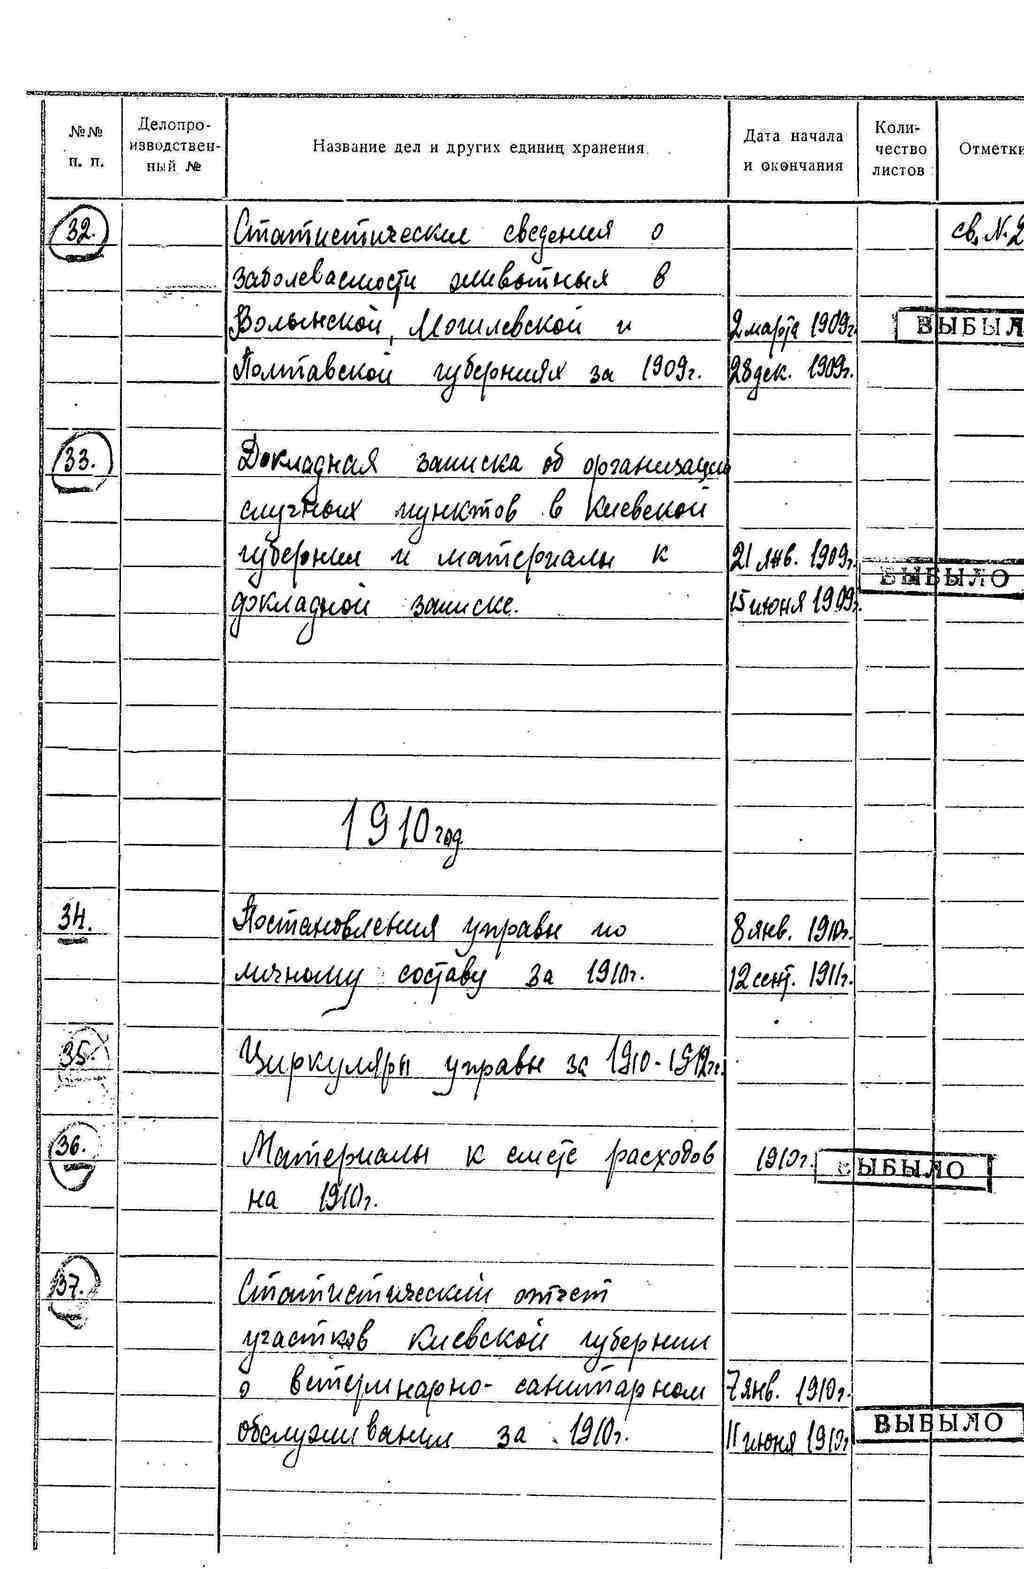 №№ п. п.
Делопро-
изводствен-
ный №
Название дел и других единиц хранения.
Дата начала
и окончания
Коли-
чество
листов
Отметки
32. Статистические сведения о св. N. 2
заболеваемости животных в
Волынской, Могилевской и 2 марта 1909г. ВЫБЫЛ
Полтавской губерниях за 1909г. 28 дек. 1909г.
33. Докладная записка об организации
случных пунктов в Киевской
губернии и материалы к 21 янв. 1909г. ВЫБЫЛО
докладной записке. 15 июня 1909г.
1910 год
34. Постановления управы по 8 янв. 1910г.
личному составу за 1910г. 12 сент. 1911г.
35. Циркуляры управы за 1910-1912гг.
36. Материалы к смете расходов 1910г. ВЫБЫЛО
на 1910г.
37. Статистический отчет
участков Киевской губернии
о ветеринарно-санитарном 7 янв. 1910г.
обслуживании за 1910г. 11 июня 1910г. ВЫБЫЛО